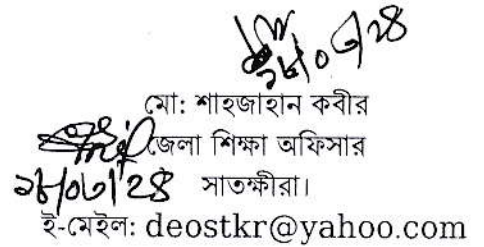 ১৮/০৩/২৪
মো: শাহজাহান কবীর
জেলা শিক্ষা অফিসার
১৮/০৩/২৪ সাতক্ষীরা।
ই-মেইল: deostkr@yahoo.com